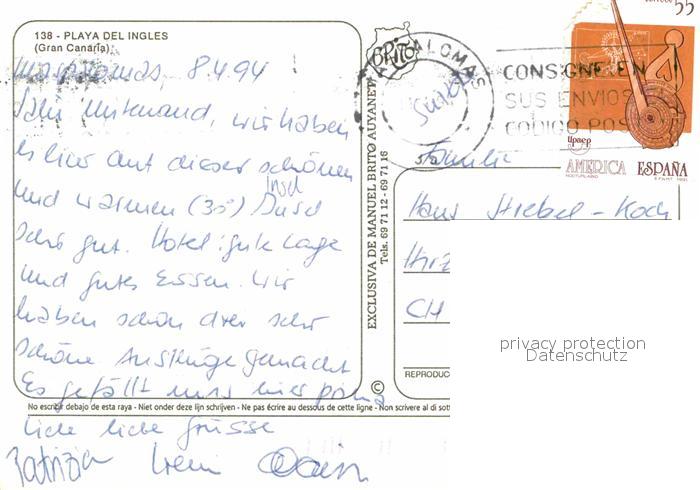 138 - PLAYA DEL INGLES
(Gran Canaria)
8.4.94
wir haben
es hier auf dieser schönen
Insel
und warmen (30°) Insel
sehr gut. Hotel: gute Lage
und gutes Essen. Wir
haben schon drei sehr
schöne Ausflüge gemacht
Es gefällt uns hier prima
Liebe liebe Grüsse
Patrizia Ireni
BRITO
EXCLUSIVA DE MANUEL BRITO AUYANET
Tels. 69 71 12 - 69 71 16
©
No escribir debajo de esta raya - Niet onder deze lijn schrijven - Ne pas écrire au dessous de cette ligne - Non scrivere al di sot
PALOMAS
CONSIGNE EN
SUS ENVIOS
CODIGO POS
55
upaep
AMERICA ESPAÑA
Familie
Hans Striebel-Koch
CH
REPRODUC
privacy protection
Datenschutz